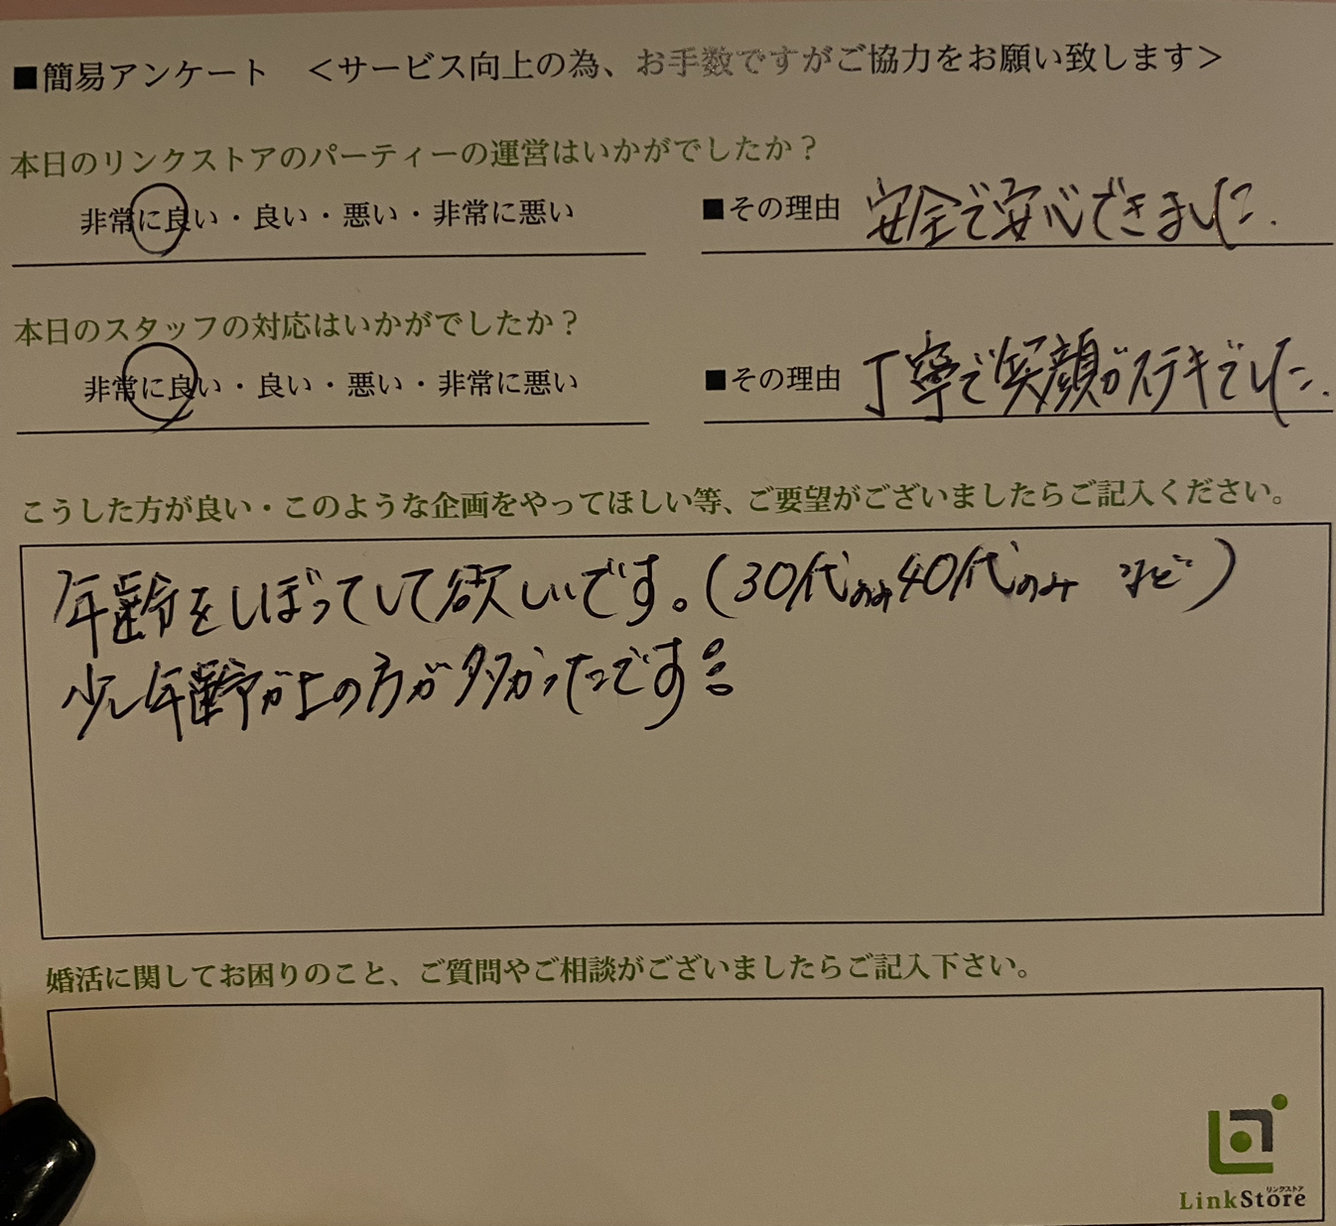 ■簡易アンケート <サービス向上の為、お手数ですがご協力をお願い致します>
本日のリンクストアのパーティーの運営はいかがでしたか？
非常に良い・良い・悪い・非常に悪い ■その理由 安全で安心できました.
本日のスタッフの対応はいかがでしたか？
非常に良い・良い・悪い・非常に悪い ■その理由 丁寧で笑顔がステキでした.
こうした方が良い・このような企画をやってほしい等、ご要望がございましたらご記入ください。
年齢をしぼってして欲しいです。(30代のみ40代のみ など)
少し年齢が上の方が多かったです
婚活に関してお困りのこと、ご質問やご相談がございましたらご記入下さい。
リンクストア
LinkStore